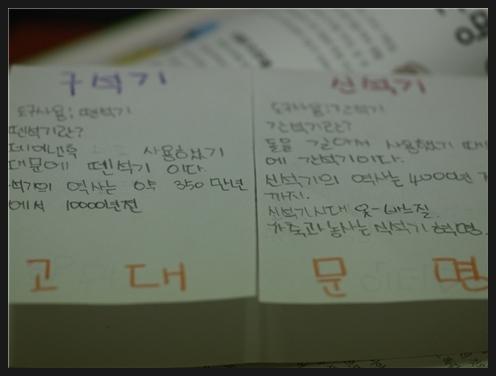 구석기
도구사용; 뗀석기
뗀석기란?
떼어낸후 사용하였기
때문에 뗀석기 이다.
석기의 역사는 약 350만년
에서 10000년전
고 대
신석기
도구사용;간석기
간석기란?
돌을 갈아서 사용했기 때
에 간석기이다.
신석기의 역사는 4000년
까지.
신석기시대 옷-바느질
가축과 농사는 신석기 혁명.
문 명